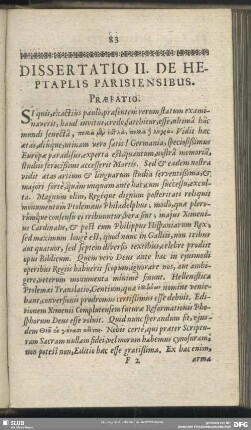 83
DISSERTATIO II. DE HE-
PTAPLIS PARISIENSIBUS.
PRÆFATIO.
Si quis exactius paulò præsentem rerum statum exami-
naverit, haud invitus credo, fatebitur, esse, ultimâ hâc
mundi senectâ, Vidit hæc
ætas, aliisque, utinam verò satis! Germania, speciosissimus
Europæ paradisus, experta est, quantum, austrâ memoriâ,
studiis ferocissimi accesserit Martis. Sed & eadem nostra
vidit ætas artium & linguarum studia ferventissima, &
majori fortè, quàm unquam ante hac, cum successu, excul-
ta. Magnum olim, Regéque dignum posteritati reliquit
monumentum Ptolemæus Philadelphus, modò, quæ pleri-
rumque consensu ei tribuuntur, vera sint; majus Ximeni-
us Cardinalis, & post eum Philippus Hispaniarum Rex;
sed maximum longè est, quod nunc in Galliis, non tribus
aut quatuor, sed septem diversis textibus, celebre prodiit
opus Biblicum. Quem verò Deus ante hac in ejusmodi
operibus Regiis habuerit scopum, ignorare nos, aut ambi-
gere, veterum monumenta minimè sinunt. Hellenistica
Ptolemæi Translatio, Gentium, quæ nomine venie-
bant, conversionis prodromus certissimus esse debuit. Edi-
tionem Ximenii Complutensem futuræ Reformationis Pho-
sphorum Deus esse voluit. Quid nunc sperandum sit, ejus-
dem Nobis certè, qui præter Scriptu-
ram Sacram nullam fidei, vel morum habemus cynosuram,
non potest non, Editio hæc esse gratissima. Ex hac enim,
F 2 arma
SLUB
DFG